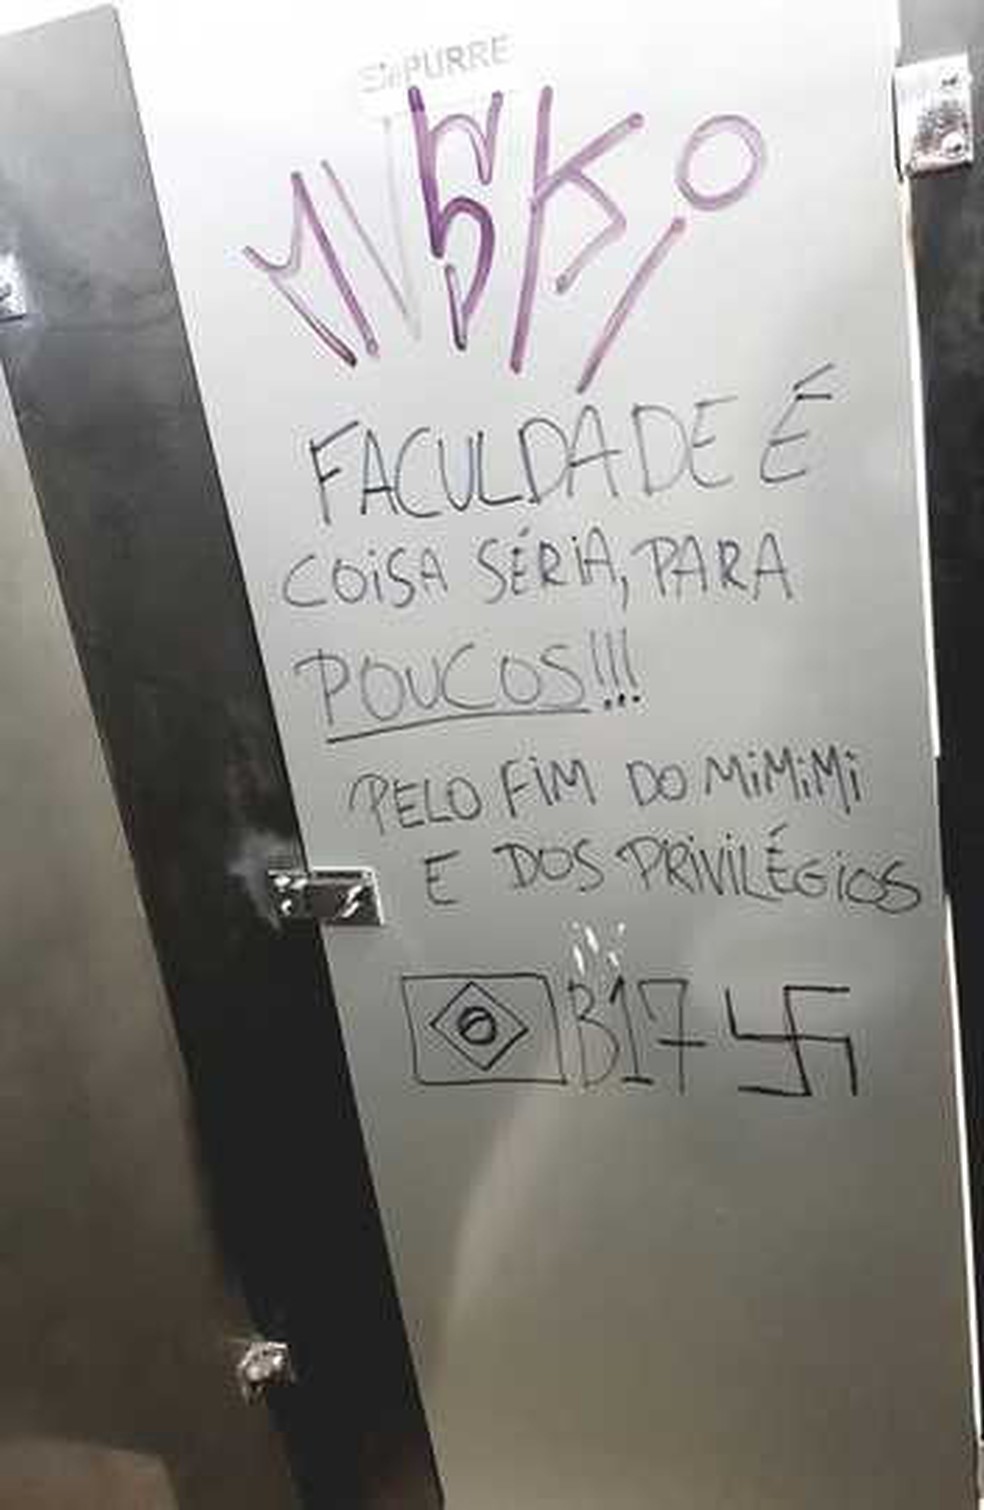 PURRE
FACULDADE É
COISA SÉRIA, PARA
POUCOS!!!
PELO FIM DO MIMIMI
E DOS PRIVILÉGIOS
B17